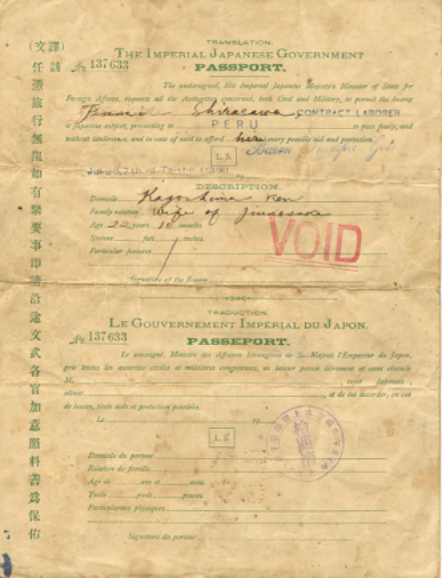 (譯文)
TRANSLATION.
THE IMPERIAL JAPANESE GOVERNMENT
PASSPORT.
No 137633
The undersigned, His Imperial Japanese Majesty's Minister of State for
Foreign Affairs, requests all the Authorities concerned, both Civil and Military, to permit the bearer
Shirasawa CONTRACT LABORER
a Japanese subject, proceeding to PERU to pass freely, and
without hindrance, and in case of need to afford her every possible aid and protection.
L.S.
7th of Taisho
DESCRIPTION.
Domicile Kagoshima Ken
Family relation Wife of
Age 22 years 10 months
Stature feet inches.
Particular features
VOID
Signature of the Bearer
TRADUCTION.
LE GOUVERNEMENT IMPÉRIAL DU JAPON.
PASSEPORT.
No 137633
Le soussigné, Ministre des Affaires Etrangères de Sa Majesté l'Empereur du Japon,
prie toutes les autorités civiles et militaires compétentes, de laisser passer librement et sans obstacle
M. sujet Japonais,
allant et de lui accorder, en cas
de besoin, toute aide et protection possibles.
Le
L.S.
Domicile du porteur
Relation de famille
Age de ans et mois.
Taille pieds pouces
Particularités physiques
Signature du porteur
任通旅行無阻如有緊要事即請沿途文武各官加意照料善爲保佑